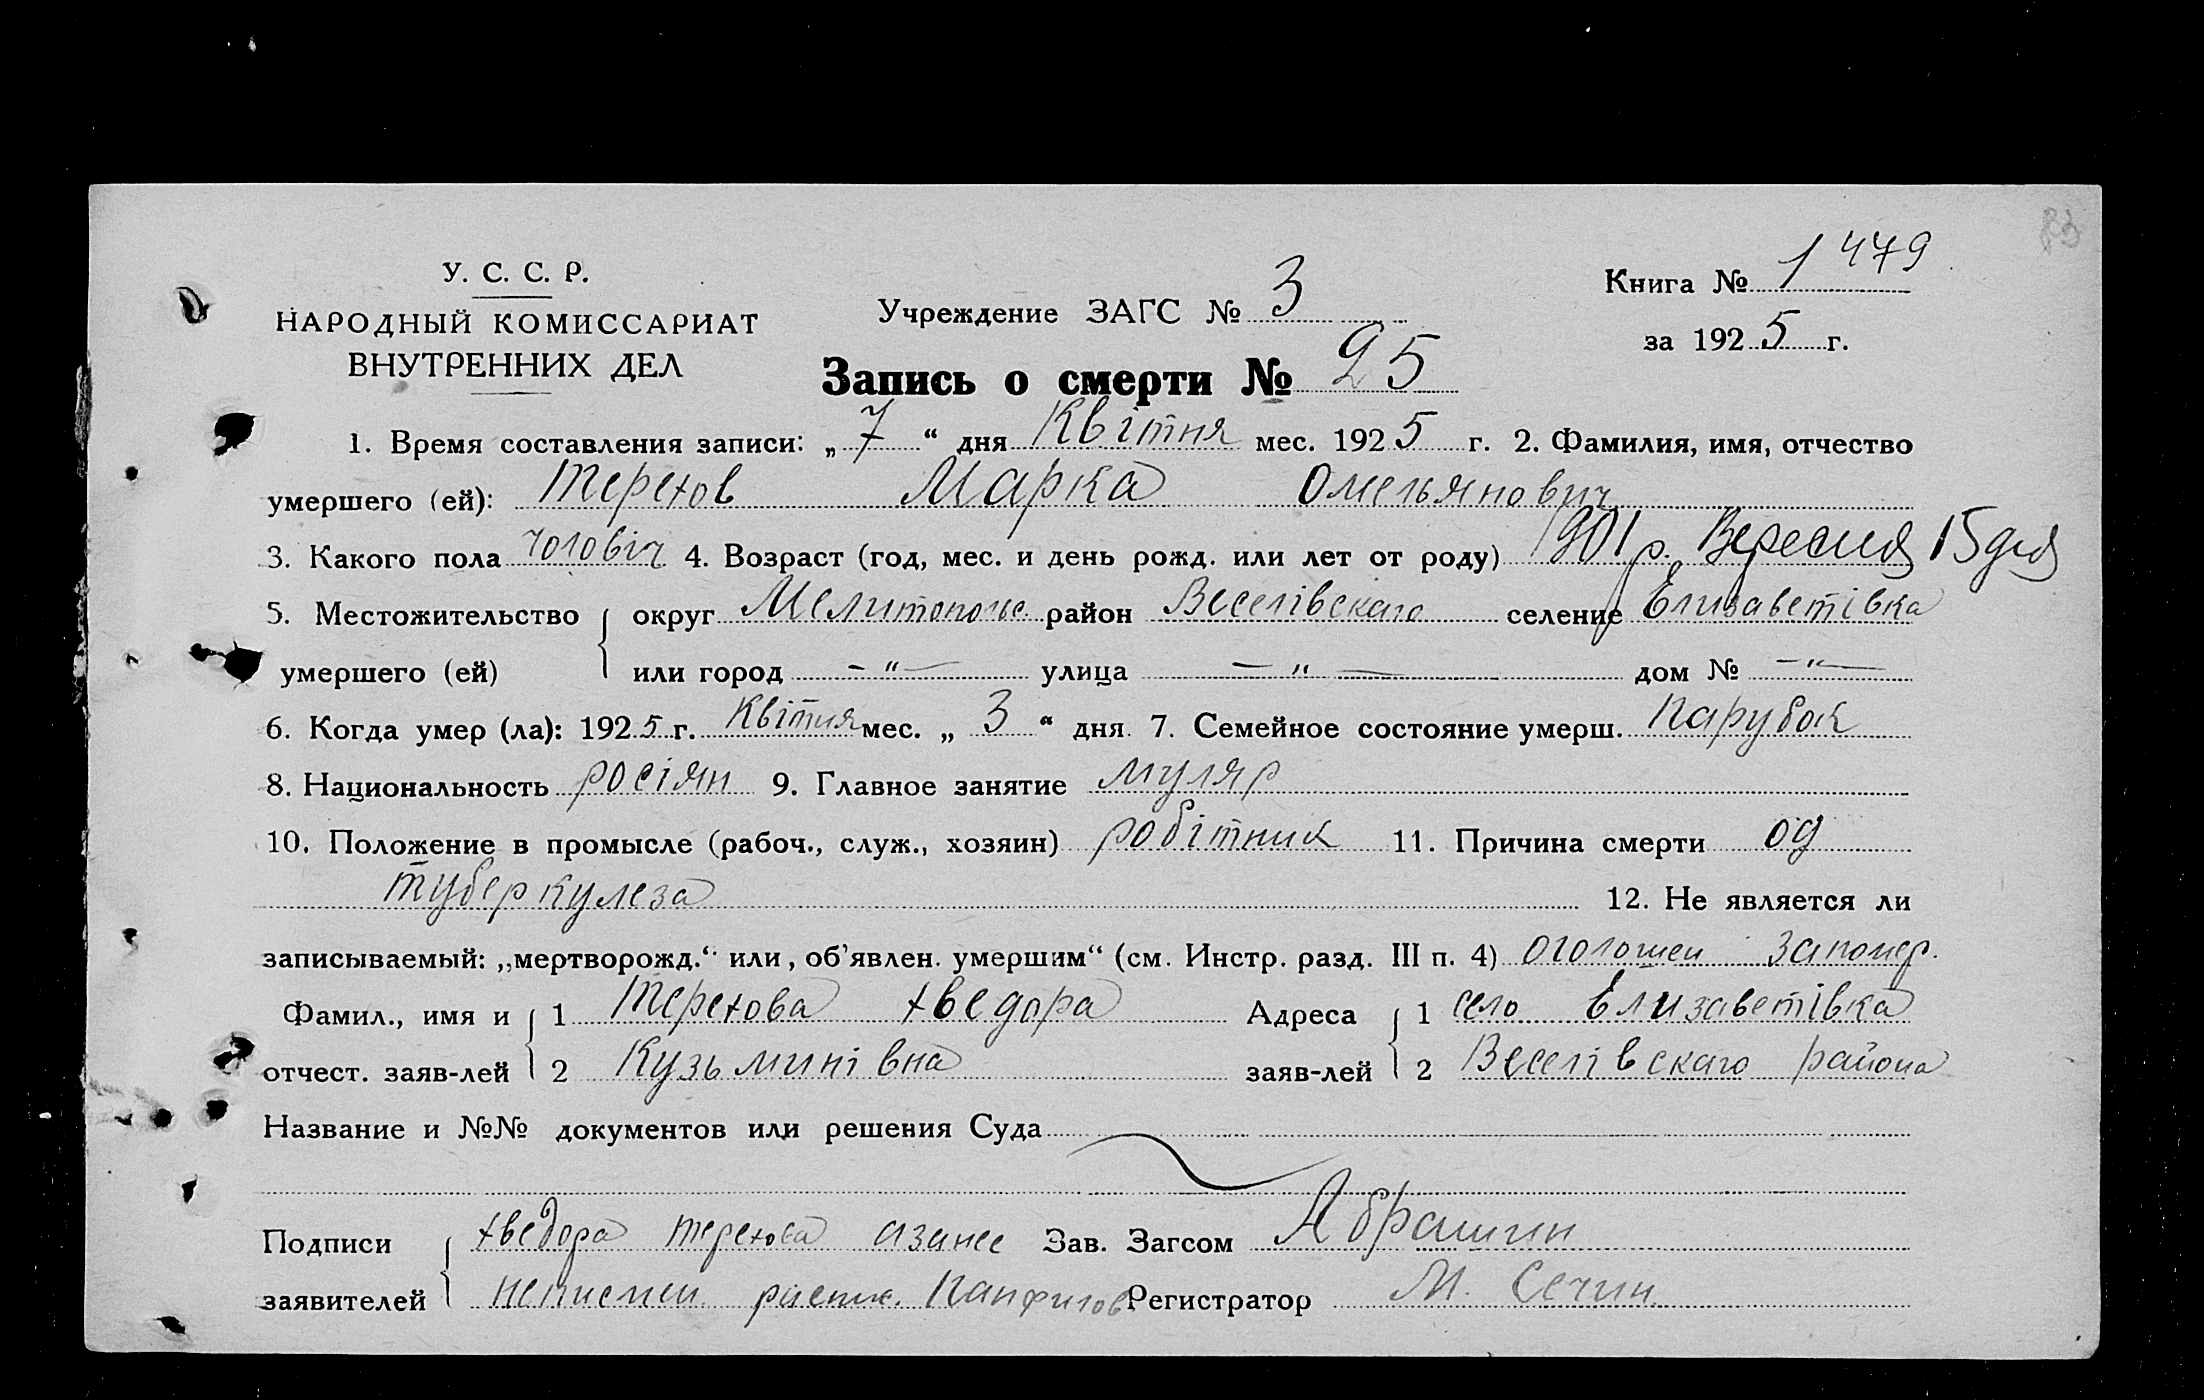 83
У. С. С. Р.
НАРОДНЫЙ КОМИССАРИАТ
ВНУТРЕННИХ ДЕЛ
Учреждение ЗАГС № 3
Книга № 1 479
за 1925 г.
Запись о смерти № 25
1. Время составления записи: „7“ дня Квітня мес. 1925 г. 2. Фамилия, имя, отчество
умершего (ей): Терехов Марка Омельянович
3. Какого пола чоловіч 4. Возраст (год, мес. и день рожд. или лет от роду) 1901 р. Вересня 15 дня
5. Местожительство округ Мелитополье район Веселівскаго селение Елизаветівка
умершего (ей) или город —„— улица —„— дом № —„—
6. Когда умер (ла): 1925 г. Квітня мес. „3“ дня. 7. Семейное состояние умерш. Парубок
8. Национальность росіян 9. Главное занятие муляр
10. Положение в промысле (рабоч., служ., хозяин) робітник 11. Причина смерти од
туберкулеза 12. Не является ли
записываемый: „мертворожд.“ или, об'явлен. умершим“ (см. Инстр. разд. III п. 4) оголошен запомер.
Фамил., имя и 1 Терехова Хведора Адреса 1 село Елизаветівка
отчест. заяв-лей 2 Кузьминівна заяв-лей 2 Веселівскаго района
Название и №№ документов или решения Суда
Подписи Хведора Терехова азанее Зав. Загсом Абрашин
заявителей неписмен распис. Панфилов Регистратор М. Сечин